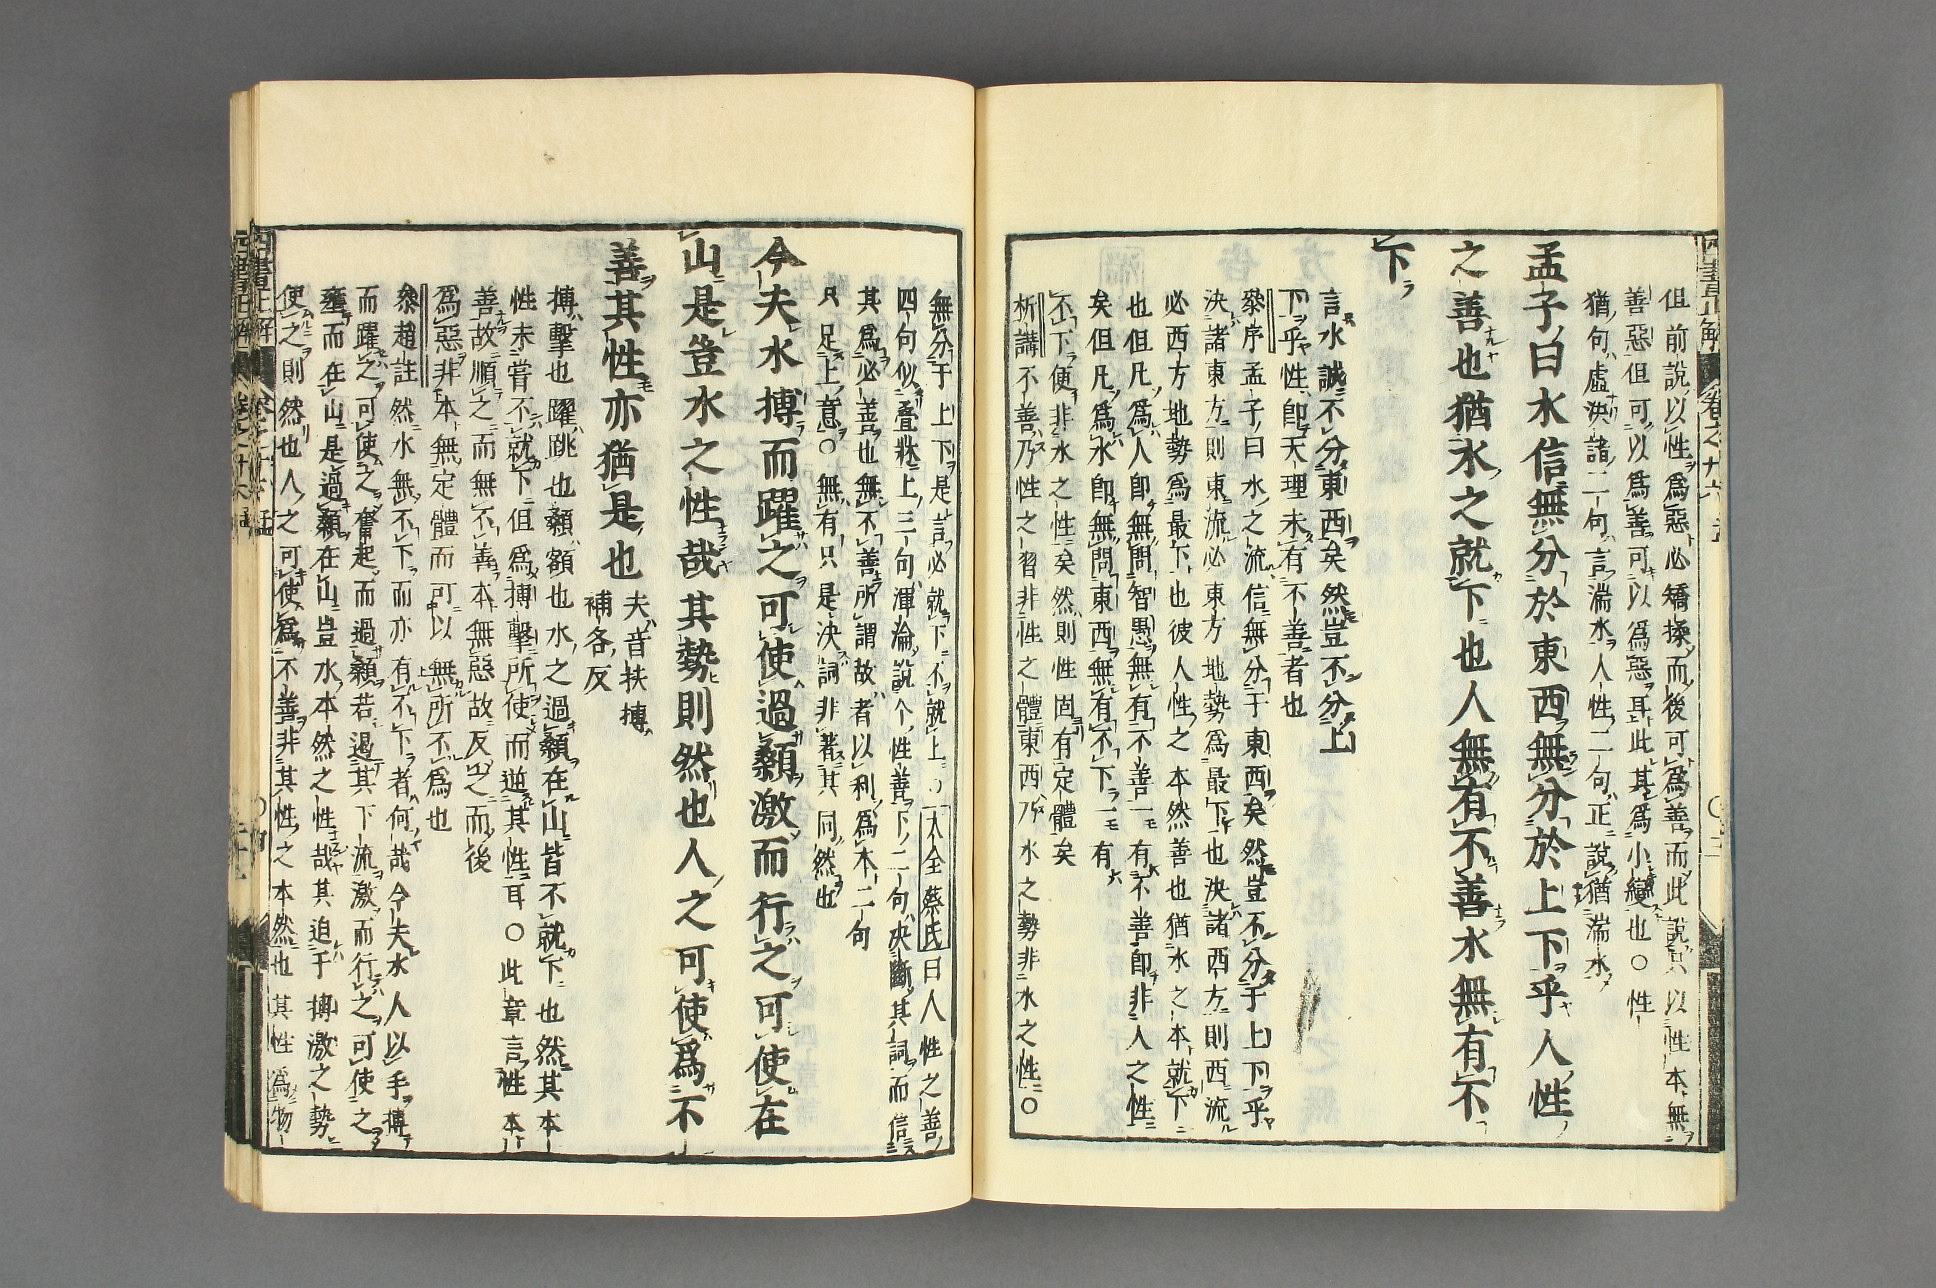 但前說以性爲惡必矯揉而後可爲善而此說只以性本無
善惡但可以爲善可以爲惡耳此其爲小變也○性
猶句虛決諸二句言湍水人性二句正說猶湍水
孟子曰水信無分於東西無分於上下乎人性
之善也猶水之就下也人無有不善水無有不
下
言水誠不分東西矣然豈不分上
下乎性即天理未有不善者也
叅序孟子曰水之流信無分于東西矣然豈不分于上下乎
決諸東方則東流必東方地勢爲最下也決諸西方則西流
必西方地勢爲最下也彼人性之本然善也猶水之本就下
也但凡爲人即無問智愚無有不善一有不善即非人之性
矣但凡爲水即無問東西無有不下一有
不下便非水之性矣然則性固有定體矣
析講不善乃性之習非性之體東西乃水之勢非水之性○
無分于上下是言必就下不就上○大全蔡氏曰人性之善
四句似疊牀上三句渾淪說个性善下二句決斷其詞而信
其爲必善也無不善所謂故者以利爲本二句
只足上意○無有只是決詞非著其同然也
今夫水搏而躍之可使過顙激而行之可使在
山是豈水之性哉其勢則然也人之可使爲不
善其性亦猶是也
夫音扶搏
補各反
搏擊也躍跳也顙額也水之過顙在山皆不就下也然其本
性未嘗不就下但爲搏擊所使而逆其性耳○此章言性本
善故順之而無不善本無惡故反之而後
爲惡非本無定體而可以無所不爲也
叅趙註然水無不下而亦有不下者何哉今夫水人以手搏
而躍之可使之奮起而過顙若遏其下流激而行之可使之
壅而在山是過顙在山豈水本然之性哉其迫于搏激之勢
使之則然也人之可使爲不善非其性之本然也其性爲物